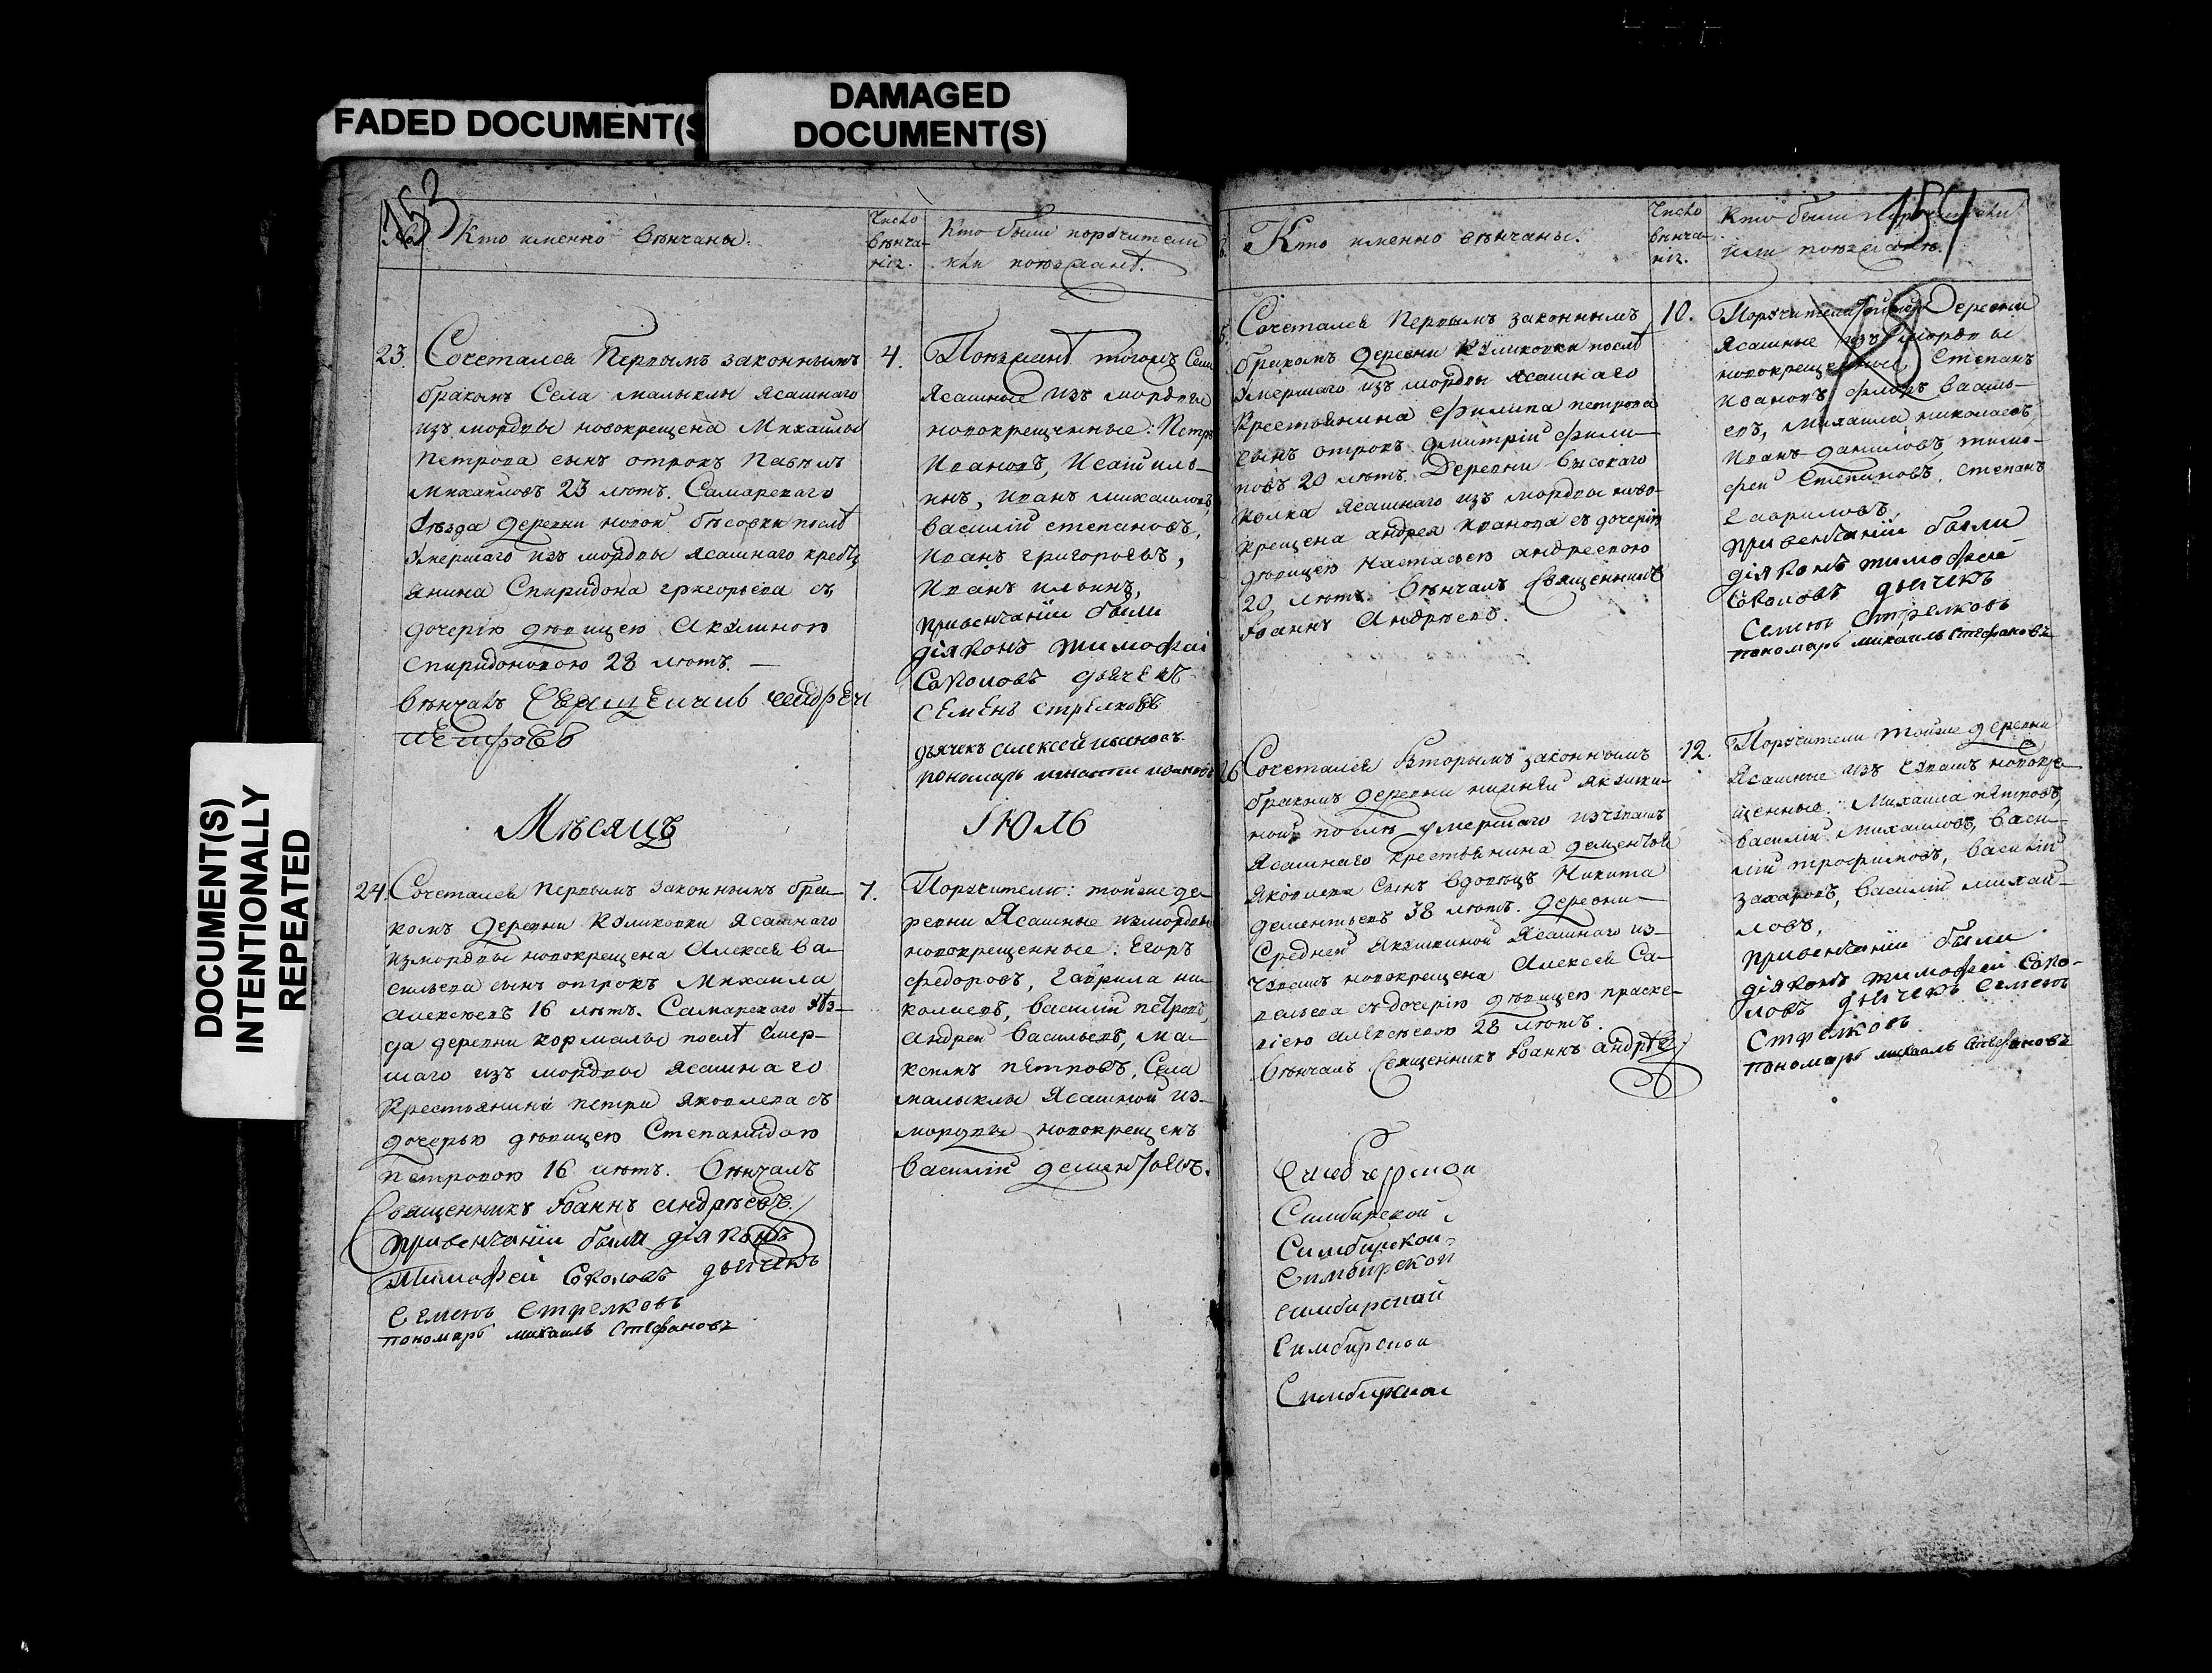 FADED DOCUMENT(S
DAMAGED
DOCUMENT(S)
DOCUMENT(S)
INTENTIONALLY
REPEATED
153
№
Кто именно венчаны.
Число
венча-
нія.
Кто были порꙋчители
или поѣзжанѣ.
23.
Сочетался первымъ законнымъ
бракомъ Села малыклы ясашнаго
изъ мордвы новокрещена Михайлы
Петрова сынъ отрокъ Павелъ
Михайловъ 23 лѣтъ. Самарскаго
ꙋѣзда деревни новой бѣсовки послѣ
ꙋмершаго изъ мордвы ясашнаго кресть
янина Спиридона григорьева съ
дочерью дѣвицею Акꙋлиною
Спиридоновою 28 лѣтъ. —
венчалъ Священникъ андрей
петровъ
4.
Поѣзжанѣ тогожъ Села
Ясашные изъ мордвы
новокрещенные: Петръ
Ивановъ, Исай иль-
инъ, иванъ михайловъ,
василій степановъ,
Иванъ григорьевъ,
Иванъ ильинъ,
привенчаніи были
діяконъ тимофѣй
Соколовъ дьячекъ
Семенъ Стрелковъ
дьячекъ алексей ивановъ.
пономарь игнатій ивановъ
Мѣсяцъ
Іюль
24.
Сочетался первымъ законнымъ бра-
комъ деревни кꙋликовки ясашнаго
измордвы новокрещена Алексея Ва-
сильева сынъ отрокъ Михайла
алексѣевъ 16 лѣтъ. Самарскаго ꙋѣз-
да деревни кормалы послѣ ꙋмер-
шаго изъ мордвы ясашнаго
крестьянина петра яковлева съ
дочерью дѣвицею Степанидою
петровою 16 лѣтъ. Венчалъ
Священникъ Іоаннъ андрѣевъ.
привенчаніи были діяконъ
Тимофей Соколовъ дьячекъ
Семенъ Стрелковъ
пономарь михаилъ Стефановъ
7.
Порꙋчители: тойже де-
ревни Ясашные измордвы
новокрещенные: Егоръ
федоровъ, гаврила ни-
колаевъ, василій петровъ,
андрей васильевъ, ма-
ксимъ петровъ, Села
малыклы Ясашной из-
мордвы новокрещенъ
василій дементьевъ.
154
Кто именно венчаны.
Число
венча-
нія.
Кто были порꙋчители
или поѣзжанѣ.
Сочетался первымъ законнымъ
бракомъ деревни кꙋликовки послѣ
ꙋмершаго изъ мордвы ясашнаго
крестьянина филипа петрова
сынъ отрокъ дмитрій фили-
повъ 20 лѣтъ. Деревни высокаго
колка ясашнаго изъ мордвы ново-
крещена андрея иванова съ дочерью
дѣвицею настасьею андреевою
20 лѣтъ. Венчалъ Священникъ
Іоаннъ Андрѣевъ.
10.
Порꙋчители тойже Деревни
ясашные изъ мордвы
новокрещенные Степанъ
Ивановъ, флоръ василь-
евъ, михайла николаевъ,
Иванъ даниловъ, тимо-
фей Степановъ, Степанъ
гавриловъ,
привенчаніи были
діяконъ тимофей
Соколовъ дьячекъ
Семенъ Стрелковъ
пономарь михаилъ Стефановъ
26
Сочетался вторымъ законнымъ
бракомъ деревни нижней якꙋшки-
ной послѣ ꙋмершаго изчꙋвашъ
ясашнаго крестьянина дементья
яковлева Сынъ вдовецъ Никита
дементьевъ 38 лѣтъ. деревни
Средней якꙋшкиной ясашнаго из-
чꙋвашъ новокрещена Алексея Са-
вельева съ дочерью дѣвицею праско-
віею алексѣевою 28 лѣтъ.
Венчалъ Священникъ Іоаннъ андрѣевъ
12.
Порꙋчители тойже деревни
Ясашные изъ чꙋвашъ новокре-
щенные: Михайла петровъ,
василій михайловъ, Васи-
лій трофимовъ, василій
захаровъ, василій михай-
ловъ,
привенчаніи были
діяконъ тимофей Соко-
ловъ дьячекъ Семенъ
Стрелковъ
пономарь михаилъ Стефановъ
Симбирской
Симбирской
Симбирской
Симбирской
Симбирской